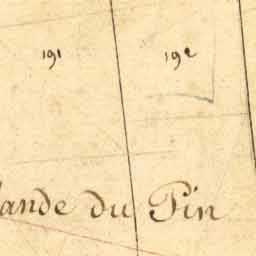 191 192
lande du Pin